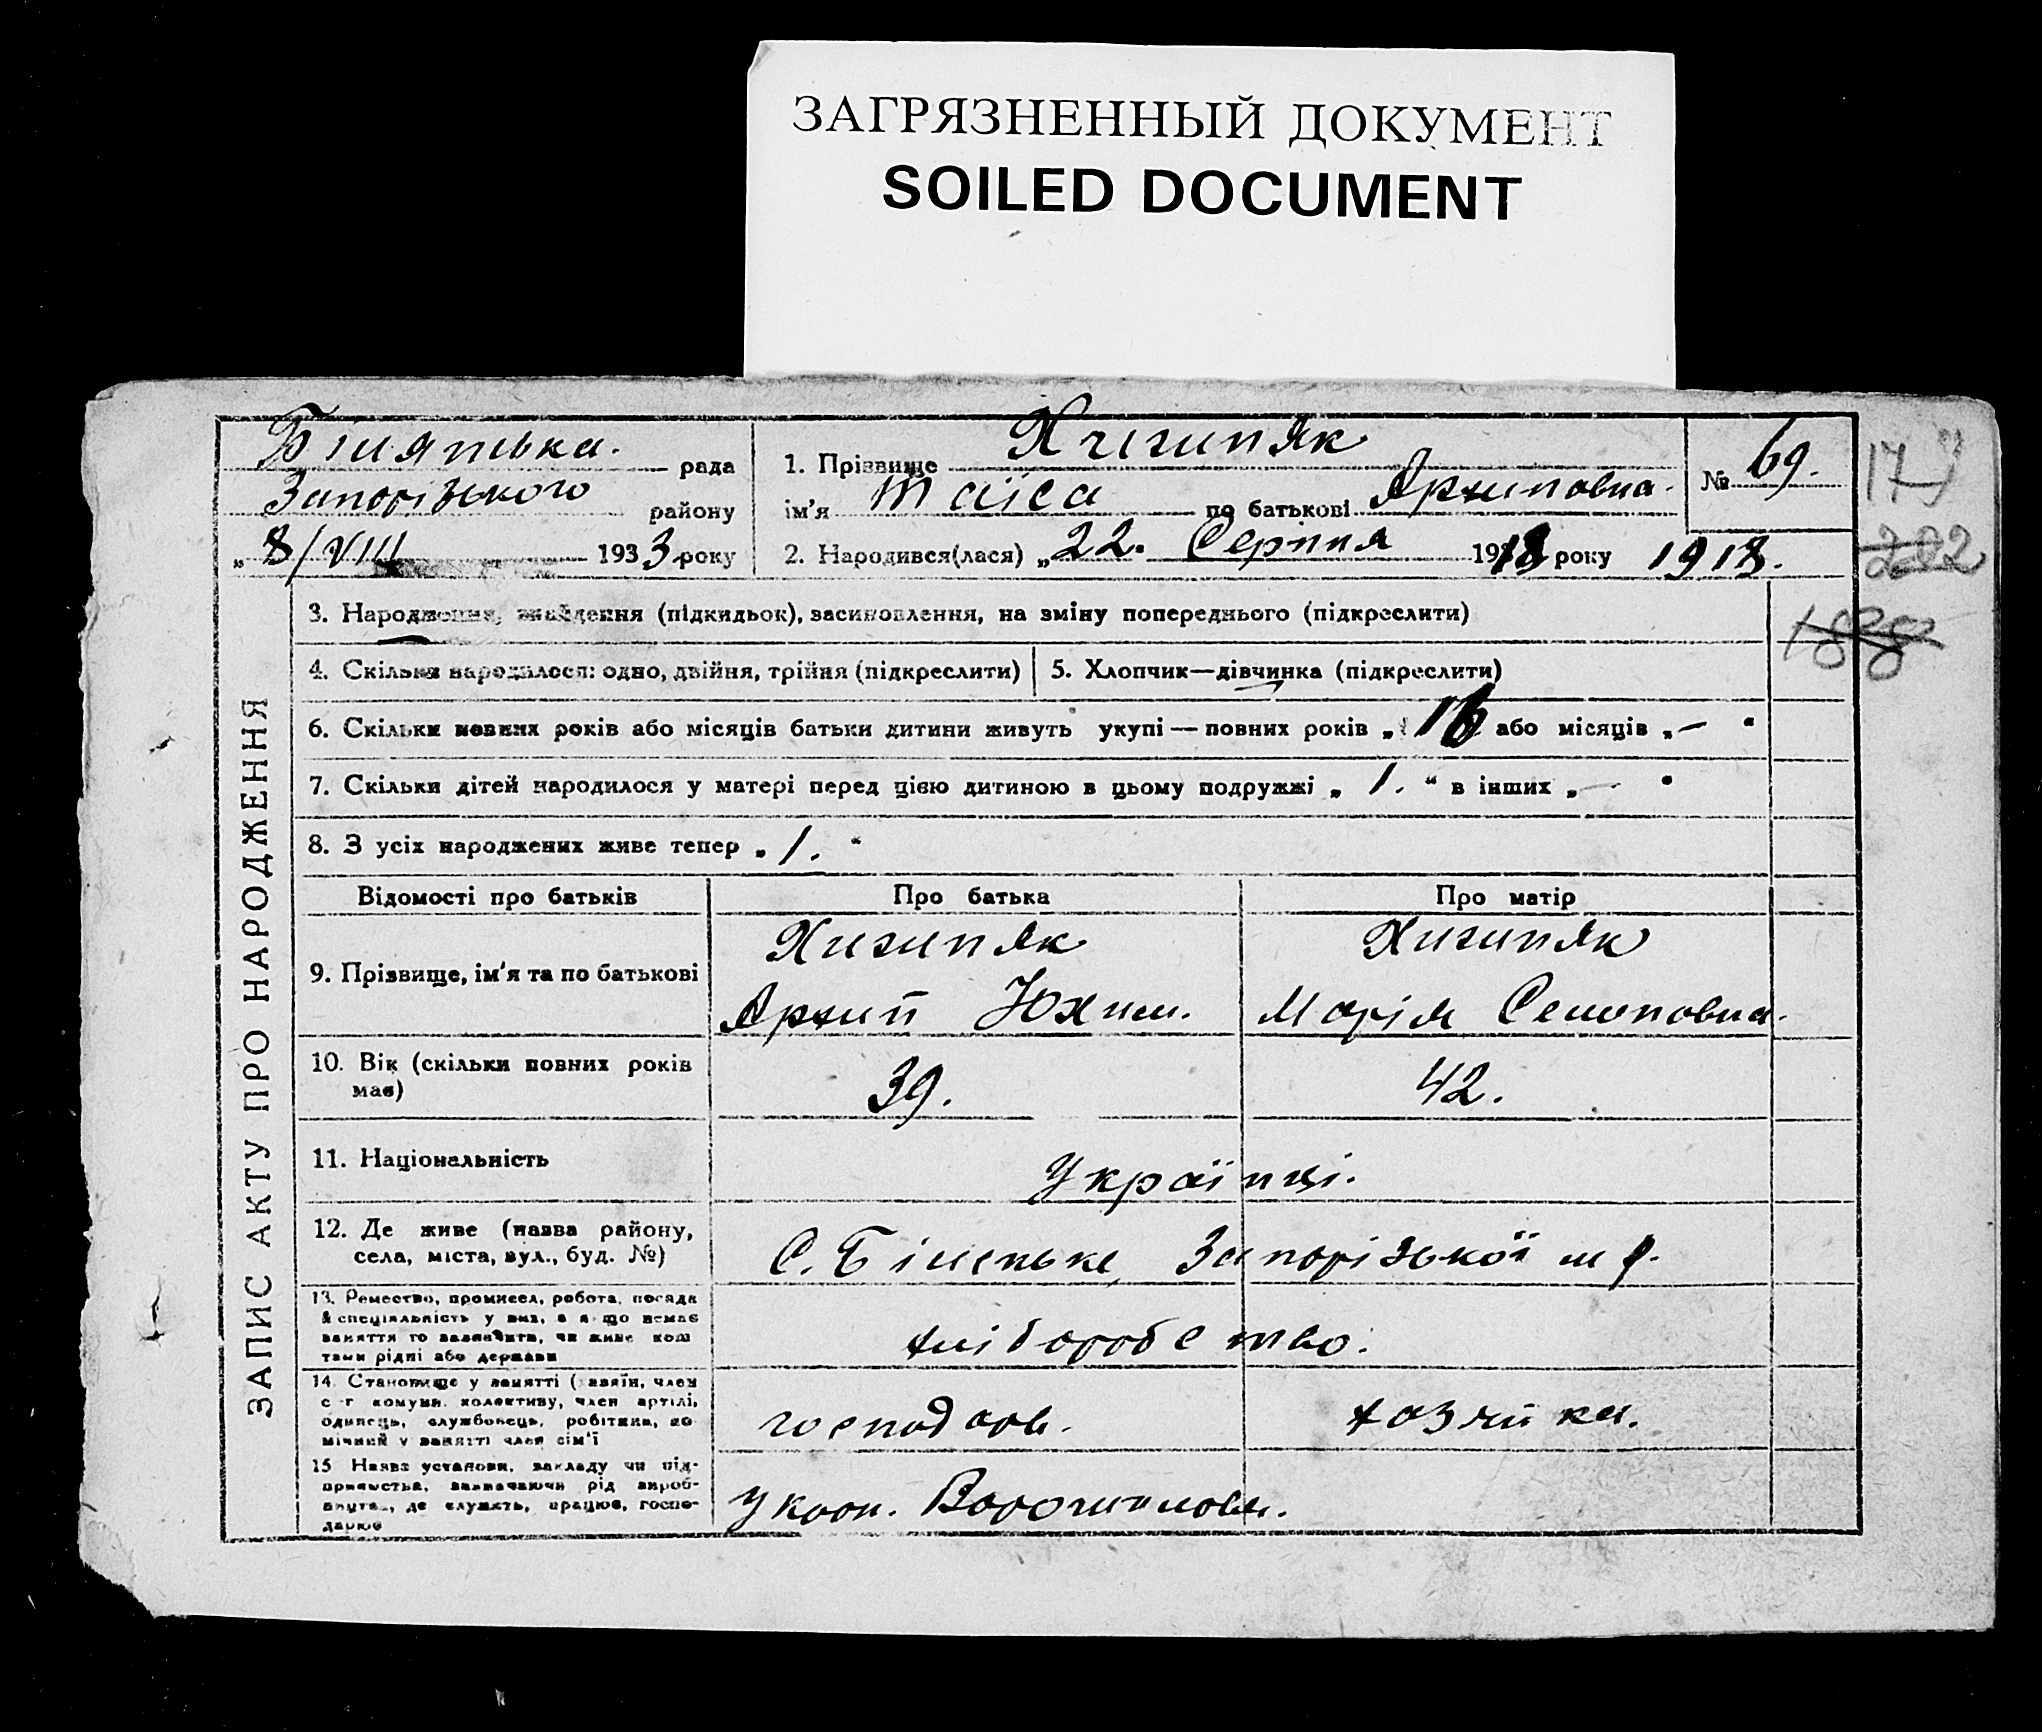 ЗАГРЯЗНЕННЫЙ ДОКУМЕНТ
SOILED DOCUMENT
рада
Запорізького району
„ 8/VIII 1933 року
1. Прізвище
№ 69.
ім'я Таїса по батькові Архиповна.
2. Народився(лася) „22. Серпня 1918 року 1918.
177
202
188
ЗАПИС АКТУ ПРО НАРОДЖЕННЯ
3. Народження, знайдення (підкидьок), засиновлення, на зміну попереднього (підкреслити)
4. Скільки народилося: одно, двійня, трійня (підкреслити)
5. Хлопчик—дівчинка (підкреслити)
6. Скільки повних років або місяців батьки дитини живуть укупі — повних років „ 16 або місяців „ — "
7. Скільки дітей народилося у матері перед цією дитиною в цьому подружжі „ 1. “ в інших „ — "
8. З усіх народжених живе тепер „ 1. “
Відомості про батьків
Про батька
Про матір
9. Прізвище, ім'я та по батькові
Архип Юхим.
Марія Семоновна.
10. Вік (скільки повних років має)
39.
42.
11. Національність
Українці.
12. Де живе (назва району, села, міста, вул., буд. №)
С. Біленьке, Запорізької м р.
13. Ремество, промисел, робота, посада й спеціяльність у них, а якщо немає заняття то зазначити, чи живе коштами рідні або держави
хліборобство.
14. Становище у занятті (хазяїн, член с-г комуни, колективу, член артілі, одинець, службовець, робітник, помічний у занятті член сім'ї
господар.
хазяйка.
15 Назва установи, закладу чи підприємства, зазначаючи рід виробництва, де служить, працює, господарює
у кооп. Ворошилова.